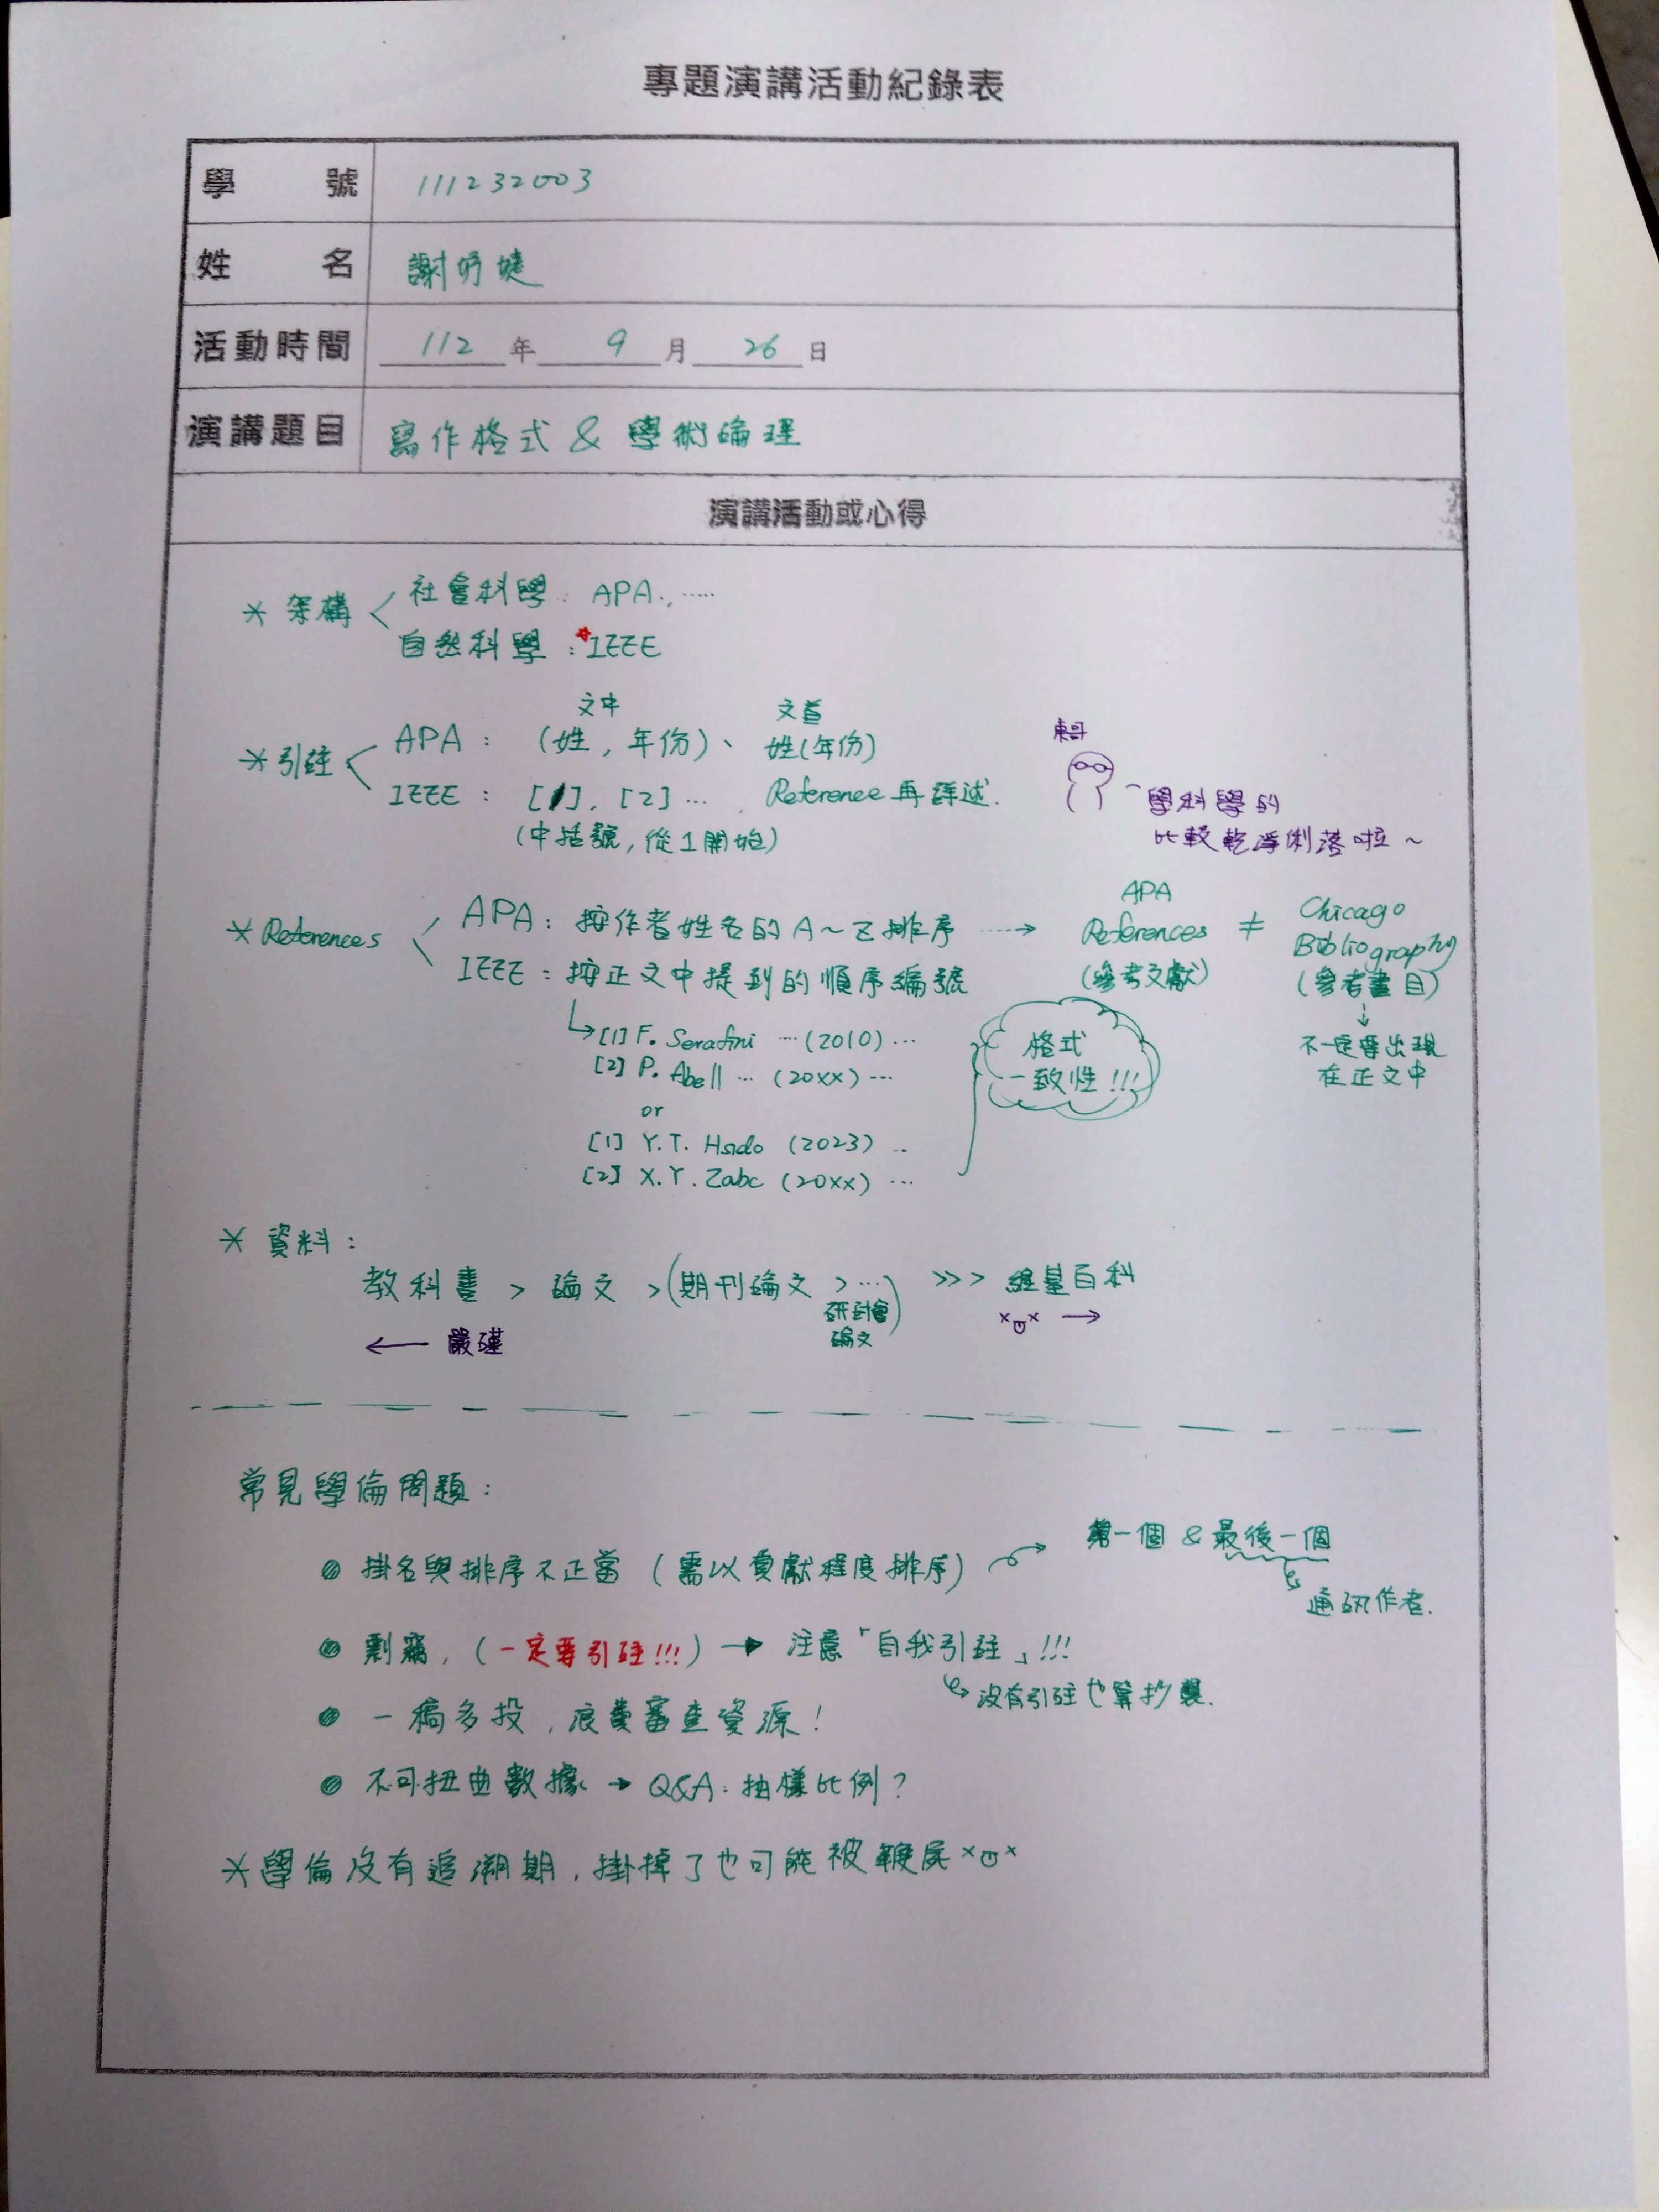 專題演講活動紀錄表
學號 111232003
姓名 謝妤婕
活動時間 112 年 9 月 26 日
演講題目 寫作格式 & 學術倫理
演講活動或心得
* 架構 < 社會科學: APA., ……
自然科學: *IEEE
文中 文首
* 引註 < APA: (姓, 年份)、 姓(年份)
IEEE: [1], [2] … , Reference 再詳述.
(中括號, 從1開始)
東哥
學科學的
比較乾淨俐落啦~
* References < APA: 按作者姓名的 A~Z 排序 ……→ APA References ≠ Chicago Bibliography
IEEE: 按正文中提到的順序編號 (參考文獻) (參考書目)
↓
不一定要出現
在正文中
↳ [1] F. Serafini …(2010)…
[2] P. Abell … (20XX) …
or
[1] Y.T. Hsdo (2023) ..
[2] X.Y. Zabc (20XX) …
格式
一致性!!!
* 資料:
教科書 > 論文 > (期刊論文 > …) >>> 維基百科
研討會
論文
← 嚴謹 →
常見學倫問題:
掛名與排序不正當 (需以貢獻程度排序) → 第一個 & 最後一個
通訊作者.
剽竊, (一定要引註!!!) → 注意「自我引註」!!!
沒有引註也算抄襲.
一稿多投, 浪費審查資源!
不可扭曲數據 → Q&A: 抽樣比例?
* 學倫沒有追溯期, 掛掉了也可能被鞭屍